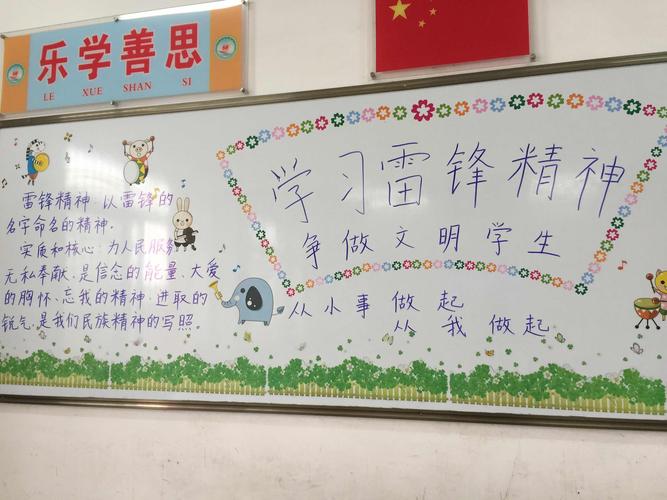 乐学善思
LE XUE SHAN SI
学习雷锋精神
争做文明学生
从小事做起
从我做起
雷锋精神,以雷锋的
名字命名的精神.
实质和核心:为人民服务
无私奉献.是信念的能量、大爱
的胸怀、忘我的精神、进取的
锐气,是我们民族精神的写照。